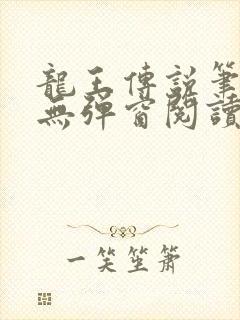 龍王傳說筆
無彈窗閱讀
一笑笙簫